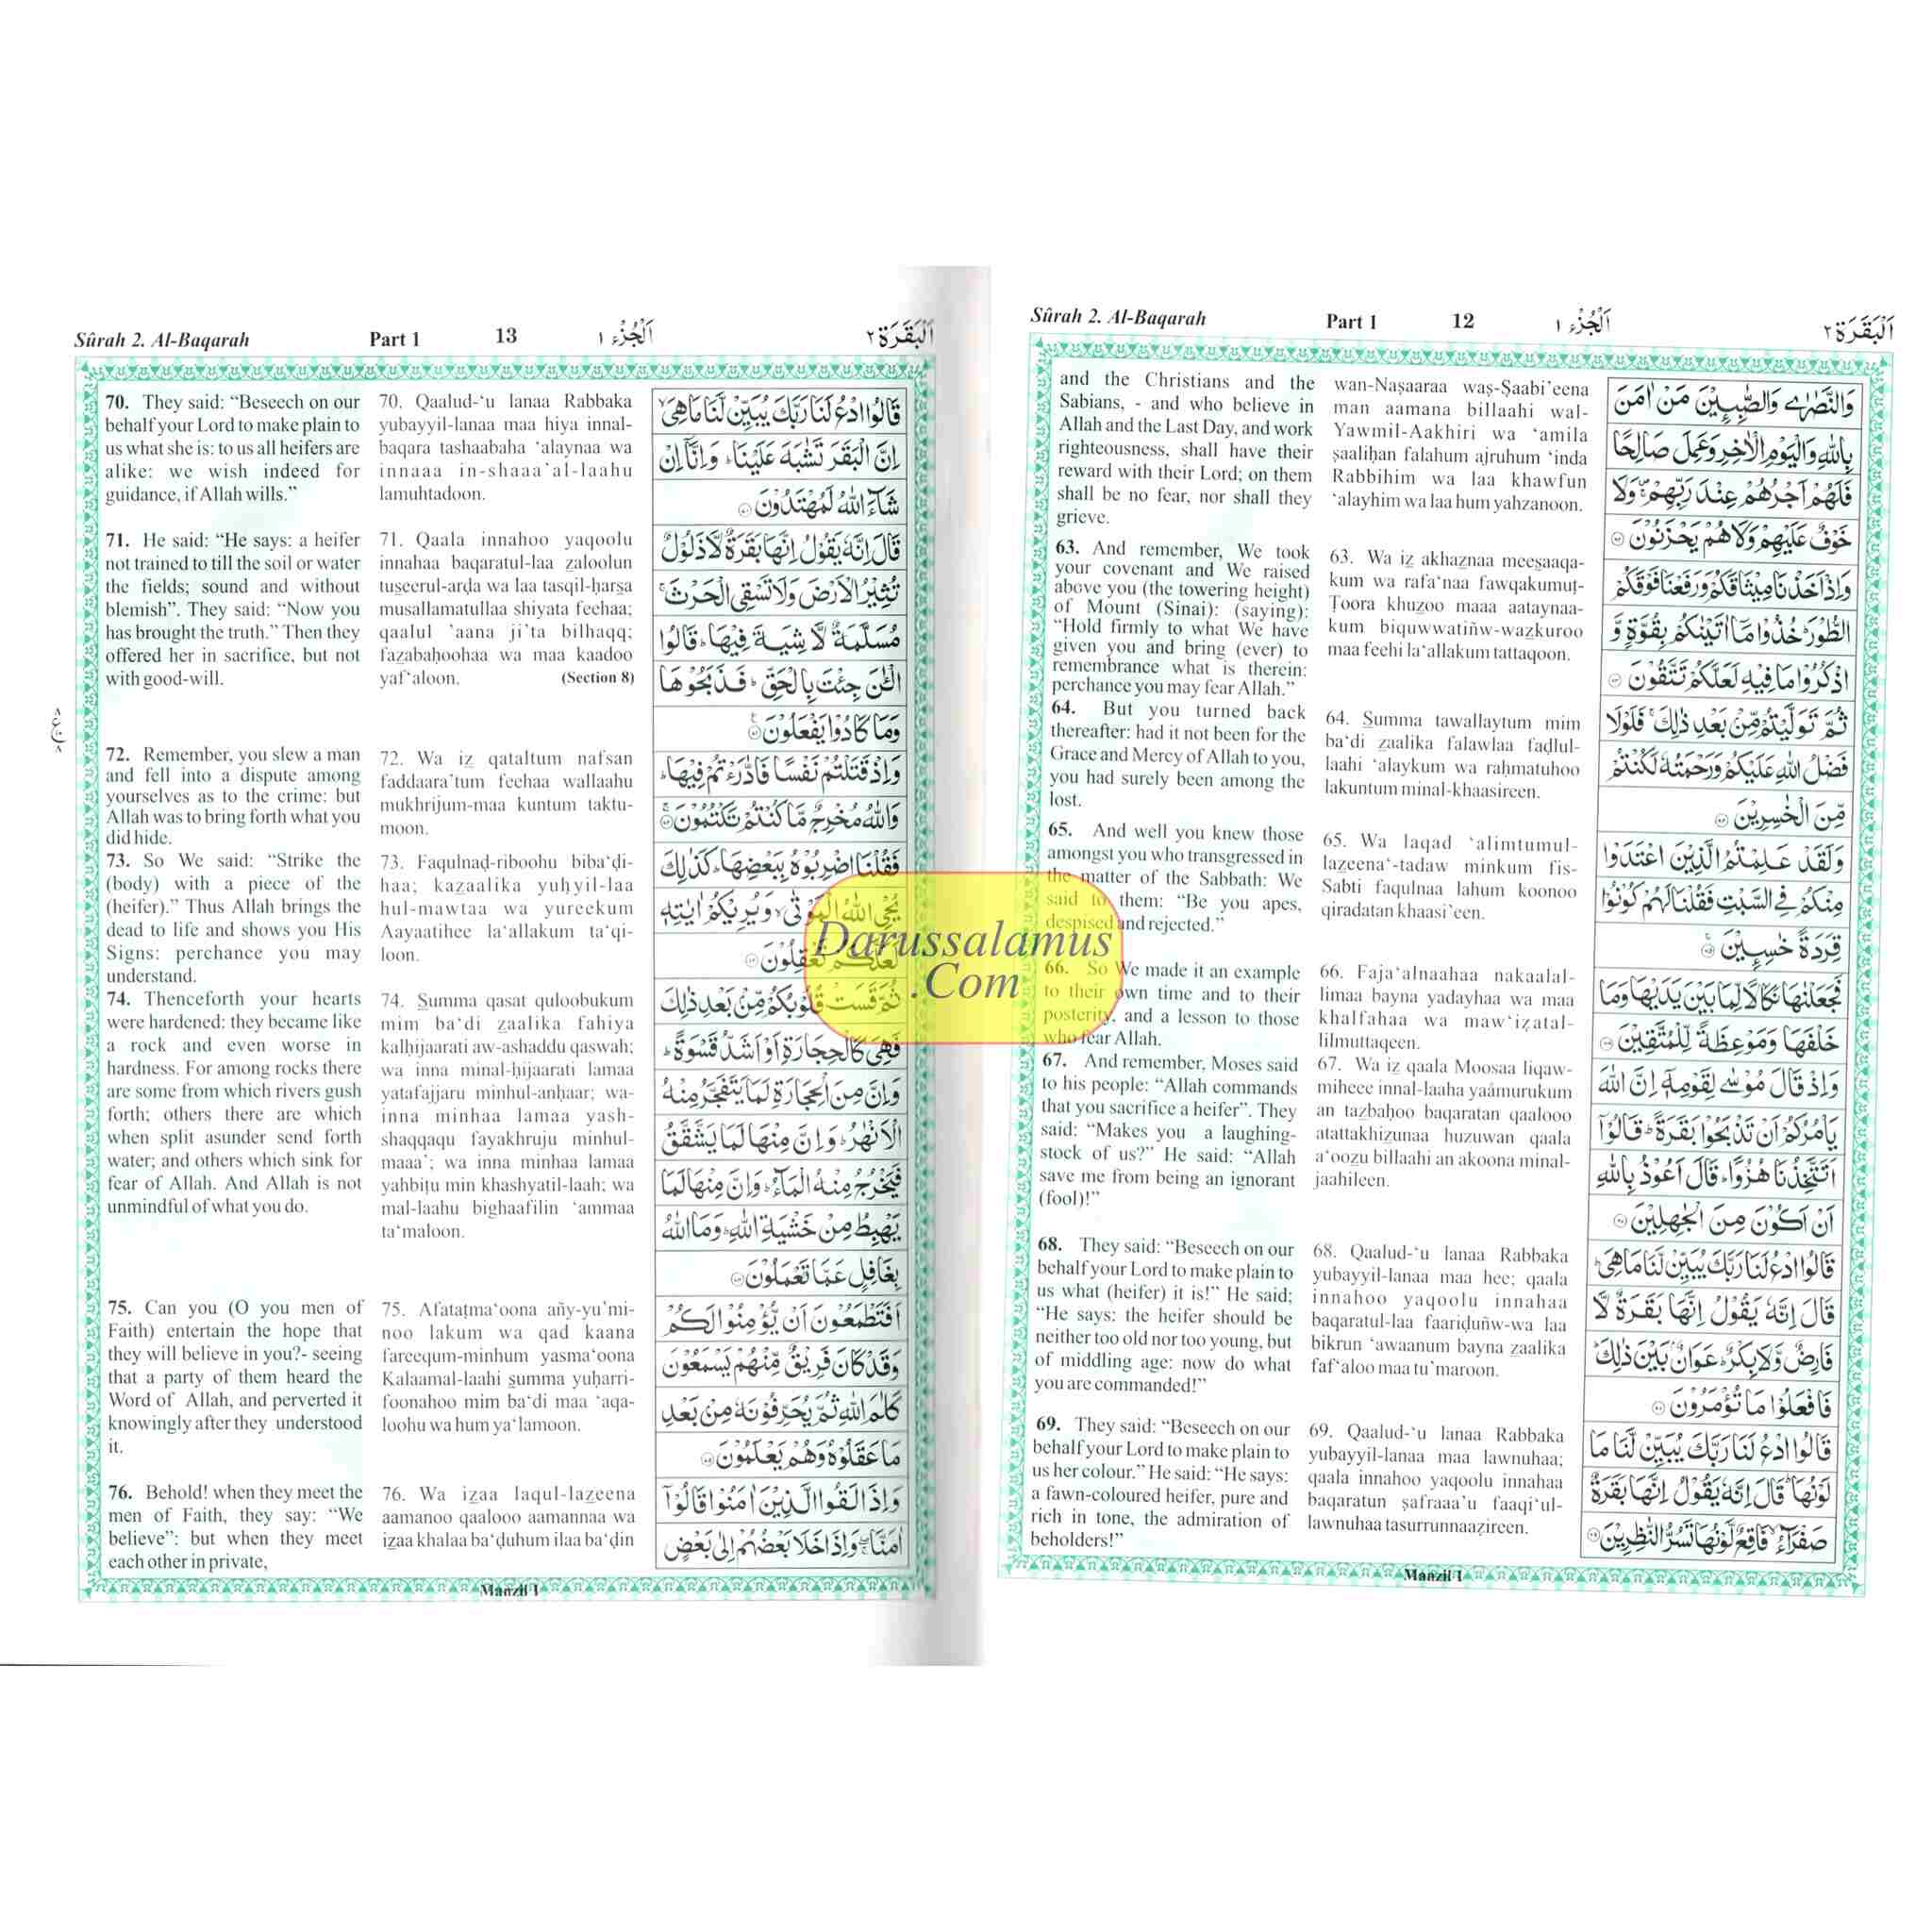 Sûrah 2. Al-Baqarah
Part 1
12
اَلْجُزْء ١
اَلْبَقَرَة ٢
and the Christians and the
Sabians, - and who believe in
Allah and the Last Day, and work
righteousness, shall have their
reward with their Lord; on them
shall be no fear, nor shall they
grieve.
63. And remember, We took
your covenant and We raised
above you (the towering height)
of Mount (Sinai): (saying):
“Hold firmly to what We have
given you and bring (ever) to
remembrance what is therein:
perchance you may fear Allah.”
64. But you turned back
thereafter: had it not been for the
Grace and Mercy of Allah to you,
you had surely been among the
lost.
65. And well you knew those
amongst you who transgressed in
the matter of the Sabbath: We
said to them: “Be you apes,
despised and rejected.”
66. So We made it an example
to their own time and to their
posterity, and a lesson to those
who fear Allah.
67. And remember, Moses said
to his people: “Allah commands
that you sacrifice a heifer”. They
said: “Makes you a laughing-
stock of us?” He said: “Allah
save me from being an ignorant
(fool)!”
68. They said: “Beseech on our
behalf your Lord to make plain to
us what (heifer) it is!” He said;
“He says: the heifer should be
neither too old nor too young, but
of middling age: now do what
you are commanded!”
69. They said: “Beseech on our
behalf your Lord to make plain to
us her colour.” He said: “He says:
a fawn-coloured heifer, pure and
rich in tone, the admiration of
beholders!”
wan-Naṣaaraa waṣ-Ṣaabi’eena
man aamana billaahi wal-
Yawmil-Aakhiri wa ‘amila
ṣaaliḥan falahum ajruhum ‘inda
Rabbihim wa laa khawfun
‘alayhim wa laa hum yahzanoon.
63. Wa iz akhaznaa meesaaqa-
kum wa rafa‘naa fawqakumuṭ-
Ṭoora khuzoo maaa aataynaa-
kum biquwwatiñw-wazkuroo
maa feehi la‘allakum tattaqoon.
64. Summa tawallaytum mim
ba‘di zaalika falawlaa faḍlul-
laahi ‘alaykum wa raḥmatuhoo
lakuntum minal-khaasireen.
65. Wa laqad ‘alimtumul-
lazeena‘-tadaw minkum fis-
Sabti faqulnaa lahum koonoo
qiradatan khaasi’een.
66. Faja‘alnaahaa nakaalal-
limaa bayna yadayhaa wa maa
khalfahaa wa maw‘izatal-
lilmuttaqeen.
67. Wa iz qaala Moosaa liqaw-
miheee innal-laaha yaámurukum
an tazbaḥoo baqaratan qaalooo
atattakhizunaa huzuwan qaala
a‘oozu billaahi an akoona minal-
jaahileen.
68. Qaalud-‘u lanaa Rabbaka
yubayyil-lanaa maa hee; qaala
innahoo yaqoolu innahaa
baqaratul-laa faariḍuñw-wa laa
bikrun ‘awaanum bayna zaalika
faf‘aloo maa tu’maroon.
69. Qaalud-‘u lanaa Rabbaka
yubayyil-lanaa maa lawnuhaa;
qaala innahoo yaqoolu innahaa
baqaratun ṣafraaa’u faaqi‘ul-
lawnuhaa tasurrunnaazireen.
وَالنَّصٰرٰى وَالصّٰبِــِٕيْنَ مَنْ اٰمَنَ
بِاللّٰهِ وَالْيَوْمِ الْاٰخِرِ وَعَمِلَ صَالِحًا
فَلَهُمْ اَجْرُهُمْ عِنْدَ رَبِّهِمْ ۪ وَلَا
خَوْفٌ عَلَيْهِمْ وَلَا هُمْ يَحْزَنُوْنَ ۶۲
وَاِذْ اَخَذْنَا مِيْثَاقَكُمْ وَرَفَعْنَا فَوْقَكُمُ
الطُّوْرَ ؕ خُذُوْا مَاۤ اٰتَيْنٰكُمْ بِقُوَّةٍ وَّ
اذْكُرُوْا مَا فِيْهِ لَعَلَّكُمْ تَتَّقُوْنَ ۶۳
ثُمَّ تَوَلَّيْتُمْ مِّنْۢ بَعْدِ ذٰلِكَ ۚ فَلَوْلَا
فَضْلُ اللّٰهِ عَلَيْكُمْ وَرَحْمَتُهٗ لَكُنْتُمْ
مِّنَ الْخٰسِرِيْنَ ۶۴
وَلَقَدْ عَلِمْتُمُ الَّذِيْنَ اعْتَدَوْا
مِنْكُمْ فِي السَّبْتِ فَقُلْنَا لَهُمْ كُوْنُوْا
قِرَدَةً خٰسِــِٕيْنَ ۶۵
فَجَعَلْنٰهَا نَكَالًا لِّمَا بَيْنَ يَدَيْهَا وَمَا
خَلْفَهَا وَمَوْعِظَةً لِّلْمُتَّقِيْنَ ۶۶
وَاِذْ قَالَ مُوْسٰى لِقَوْمِهٖۤ اِنَّ اللّٰهَ
يَاْمُرُكُمْ اَنْ تَذْبَحُوْا بَقَرَةً ؕ قَالُوْۤا
اَتَتَّخِذُنَا هُزُوًا ؕ قَالَ اَعُوْذُ بِاللّٰهِ
اَنْ اَكُوْنَ مِنَ الْجٰهِلِيْنَ ۶۷
قَالُوا ادْعُ لَنَا رَبَّكَ يُبَيِّنْ لَّنَا مَا هِيَ ؕ
قَالَ اِنَّهٗ يَقُوْلُ اِنَّهَا بَقَرَةٌ لَّا
فَارِضٌ وَّلَا بِكْرٌ ؕ عَوَانٌۢ بَيْنَ ذٰلِكَ ؕ
فَافْعَلُوْا مَا تُؤْمَرُوْنَ ۶۸
قَالُوا ادْعُ لَنَا رَبَّكَ يُبَيِّنْ لَّنَا مَا
لَوْنُهَا ؕ قَالَ اِنَّهٗ يَقُوْلُ اِنَّهَا بَقَرَةٌ
صَفْرَآءُ ۙ فَاقِعٌ لَّوْنُهَا تَسُرُّ النّٰظِرِيْنَ ۶۹
Manzil 1
Sûrah 2. Al-Baqarah
Part 1
13
اَلْجُزْء ١
اَلْبَقَرَة ٢
70. They said: “Beseech on our
behalf your Lord to make plain to
us what she is: to us all heifers are
alike: we wish indeed for
guidance, if Allah wills.”
71. He said: “He says: a heifer
not trained to till the soil or water
the fields; sound and without
blemish”. They said: “Now you
has brought the truth.” Then they
offered her in sacrifice, but not
with good-will.
72. Remember, you slew a man
and fell into a dispute among
yourselves as to the crime: but
Allah was to bring forth what you
did hide.
73. So We said: “Strike the
(body) with a piece of the
(heifer).” Thus Allah brings the
dead to life and shows you His
Signs: perchance you may
understand.
74. Thenceforth your hearts
were hardened: they became like
a rock and even worse in
hardness. For among rocks there
are some from which rivers gush
forth; others there are which
when split asunder send forth
water; and others which sink for
fear of Allah. And Allah is not
unmindful of what you do.
75. Can you (O you men of
Faith) entertain the hope that
they will believe in you?- seeing
that a party of them heard the
Word of Allah, and perverted it
knowingly after they understood
it.
76. Behold! when they meet the
men of Faith, they say: “We
believe”: but when they meet
each other in private,
70. Qaalud-‘u lanaa Rabbaka
yubayyil-lanaa maa hiya innal-
baqara tashaabaha ‘alaynaa wa
innaaa in-shaaa’al-laahu
lamuhtadoon.
71. Qaala innahoo yaqoolu
innahaa baqaratul-laa zaloolun
tuseerul-arḍa wa laa tasqil-ḥarsa
musallamatullaa shiyata feehaa;
qaalul ’aana ji’ta bilhaqq;
fazabaḥoohaa wa maa kaadoo
yaf‘aloon. (Section 8)
72. Wa iz qataltum nafsan
faddaara’tum feehaa wallaahu
mukhrijum-maa kuntum taktu-
moon.
73. Faqulnaḍ-riboohu biba‘ḍi-
haa; kazaalika yuḥyil-laa
hul-mawtaa wa yureekum
Aayaatihee la‘allakum ta‘qi-
loon.
74. Summa qasat quloobukum
mim ba‘di zaalika fahiya
kalḥijaarati aw-ashaddu qaswah;
wa inna minal-ḥijaarati lamaa
yatafajjaru minhul-anḥaar; wa-
inna minhaa lamaa yash-
shaqqaqu fayakhruju minhul-
maaa’; wa inna minhaa lamaa
yahbiṭu min khashyatil-laah; wa
mal-laahu bighaafilin ‘ammaa
ta‘maloon.
75. Afataṭma‘oona añy-yu’mi-
noo lakum wa qad kaana
fareequm-minhum yasma‘oona
Kalaamal-laahi summa yuḥarri-
foonahoo mim ba‘di maa ‘aqa-
loohu wa hum ya‘lamoon.
76. Wa izaa laqul-lazeena
aamanoo qaalooo aamannaa wa
izaa khalaa ba‘ḍuhum ilaa ba‘ḍin
قَالُوا ادْعُ لَنَا رَبَّكَ يُبَيِّنْ لَّنَا مَا هِيَ ۙ
اِنَّ الْبَقَرَ تَشٰبَهَ عَلَيْنَا ؕ وَاِنَّاۤ اِنْ
شَآءَ اللّٰهُ لَمُهْتَدُوْنَ ۷۰
قَالَ اِنَّهٗ يَقُوْلُ اِنَّهَا بَقَرَةٌ لَّا ذَلُوْلٌ
تُثِيْرُ الْاَرْضَ وَلَا تَسْقِي الْحَرْثَ ۚ
مُسَلَّمَةٌ لَّا شِيَةَ فِيْهَا ؕ قَالُوا
الْـٰٔنَ جِئْتَ بِالْحَقِّ ؕ فَذَبَحُوْهَا
وَمَا كَادُوْا يَفْعَلُوْنَ ۷۱
وَاِذْ قَتَلْتُمْ نَفْسًا فَادّٰرَءْتُمْ فِيْهَا ؕ
وَاللّٰهُ مُخْرِجٌ مَّا كُنْتُمْ تَكْتُمُوْنَ ۷۲
فَقُلْنَا اضْرِبُوْهُ بِبَعْضِهَا ؕ كَذٰلِكَ
يُحْيِ اللّٰهُ الْمَوْتٰى ۙ وَيُرِيْكُمْ اٰيٰتِهٖ
لَعَلَّكُمْ تَعْقِلُوْنَ ۷۳
ثُمَّ قَسَتْ قُلُوْبُكُمْ مِّنْۢ بَعْدِ ذٰلِكَ
فَهِيَ كَالْحِجَارَةِ اَوْ اَشَدُّ قَسْوَةً ؕ
وَاِنَّ مِنَ الْحِجَارَةِ لَمَا يَتَفَجَّرُ مِنْهُ
الْاَنْهٰرُ ؕ وَاِنَّ مِنْهَا لَمَا يَشَّقَّقُ
فَيَخْرُجُ مِنْهُ الْمَآءُ ؕ وَاِنَّ مِنْهَا لَمَا
يَهْبِطُ مِنْ خَشْيَةِ اللّٰهِ ؕ وَمَا اللّٰهُ
بِغَافِلٍ عَمَّا تَعْمَلُوْنَ ۷۴
اَفَتَطْمَعُوْنَ اَنْ يُّؤْمِنُوْا لَكُمْ
وَقَدْ كَانَ فَرِيْقٌ مِّنْهُمْ يَسْمَعُوْنَ
كَلٰمَ اللّٰهِ ثُمَّ يُحَرِّفُوْنَهٗ مِنْۢ بَعْدِ
مَا عَقَلُوْهُ وَهُمْ يَعْلَمُوْنَ ۷۵
وَاِذَا لَقُوا الَّذِيْنَ اٰمَنُوْا قَالُوْۤا
اٰمَنَّا ۖۚ وَاِذَا خَلَا بَعْضُهُمْ اِلٰى بَعْضٍ
Manzil 1
Darussalamus
.Com